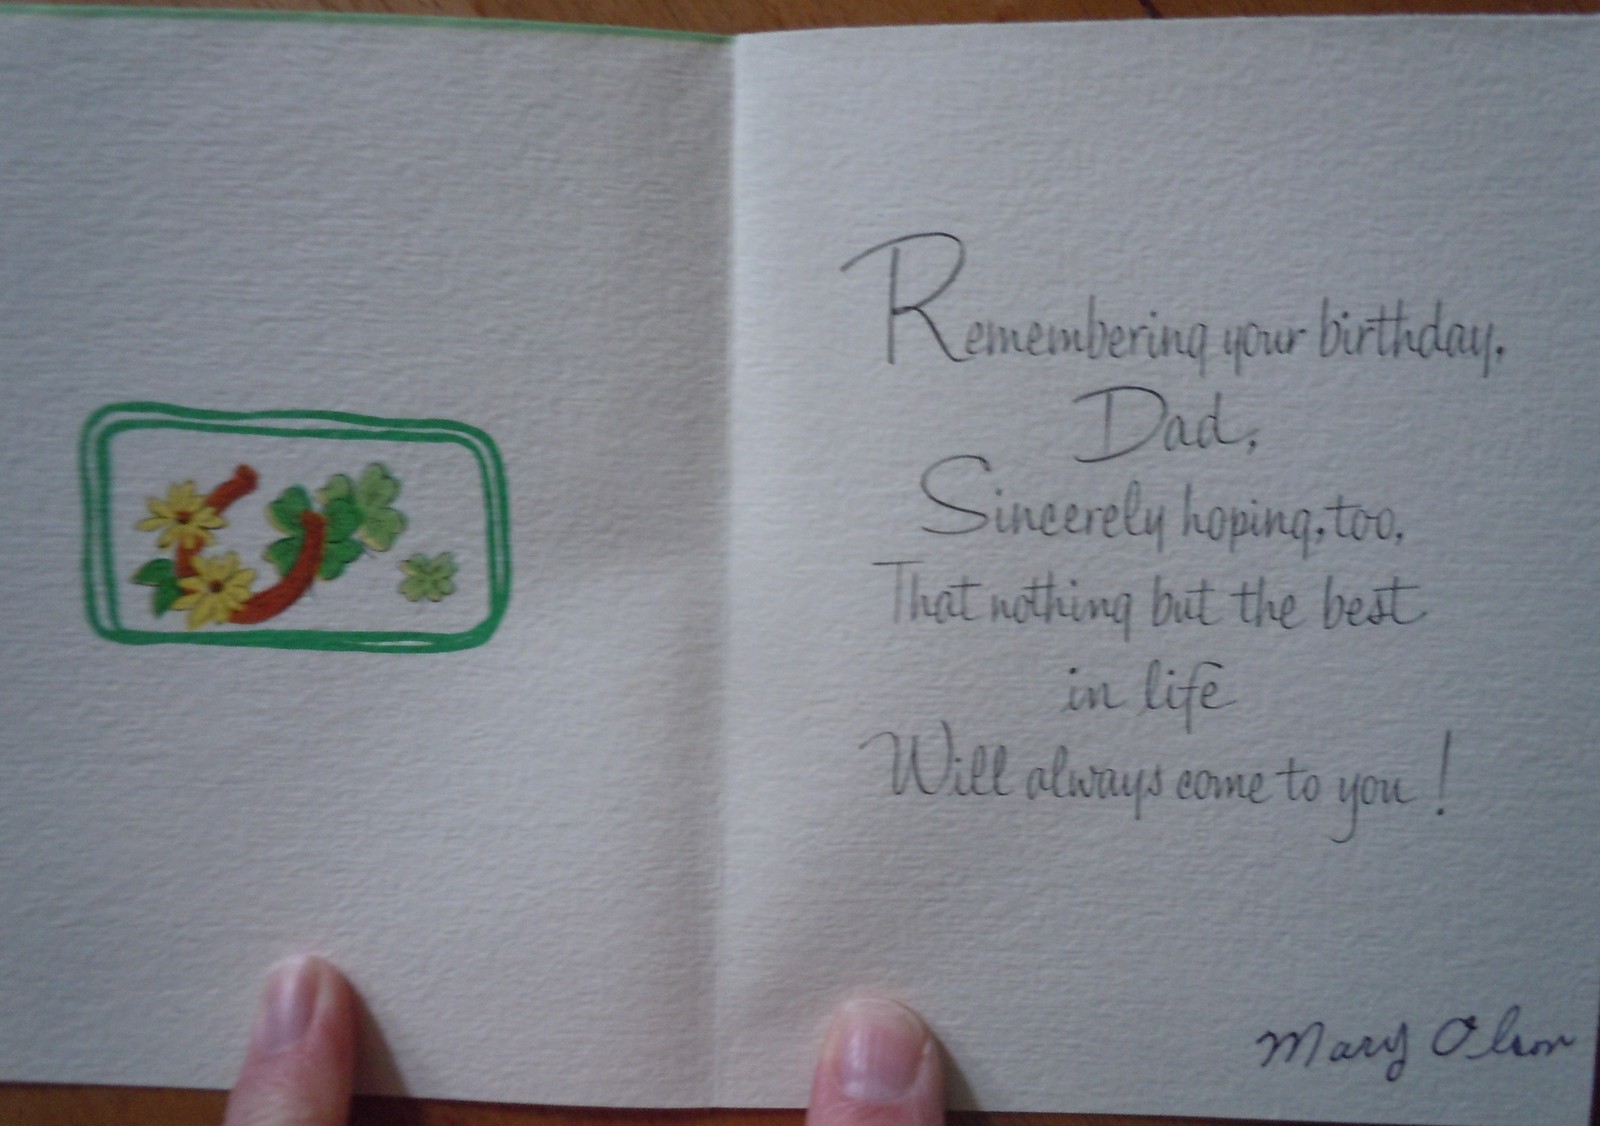 Remembering your birthday,
Dad,
Sincerely hoping, too,
That nothing but the best
in life
Will always come to you!
Mary Olson